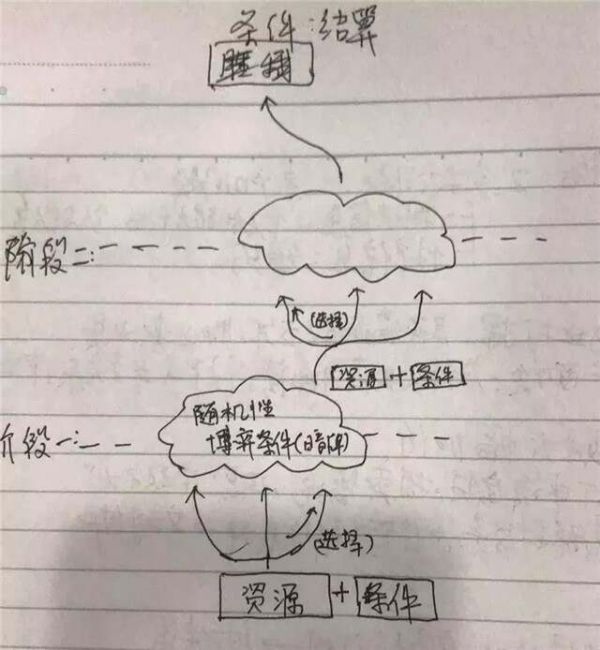 条件:结算
胜利
阶段二:
(选择)
资源+条件
随机性
阶段一:
博弈条件(暗牌)
(选择)
资源+条件